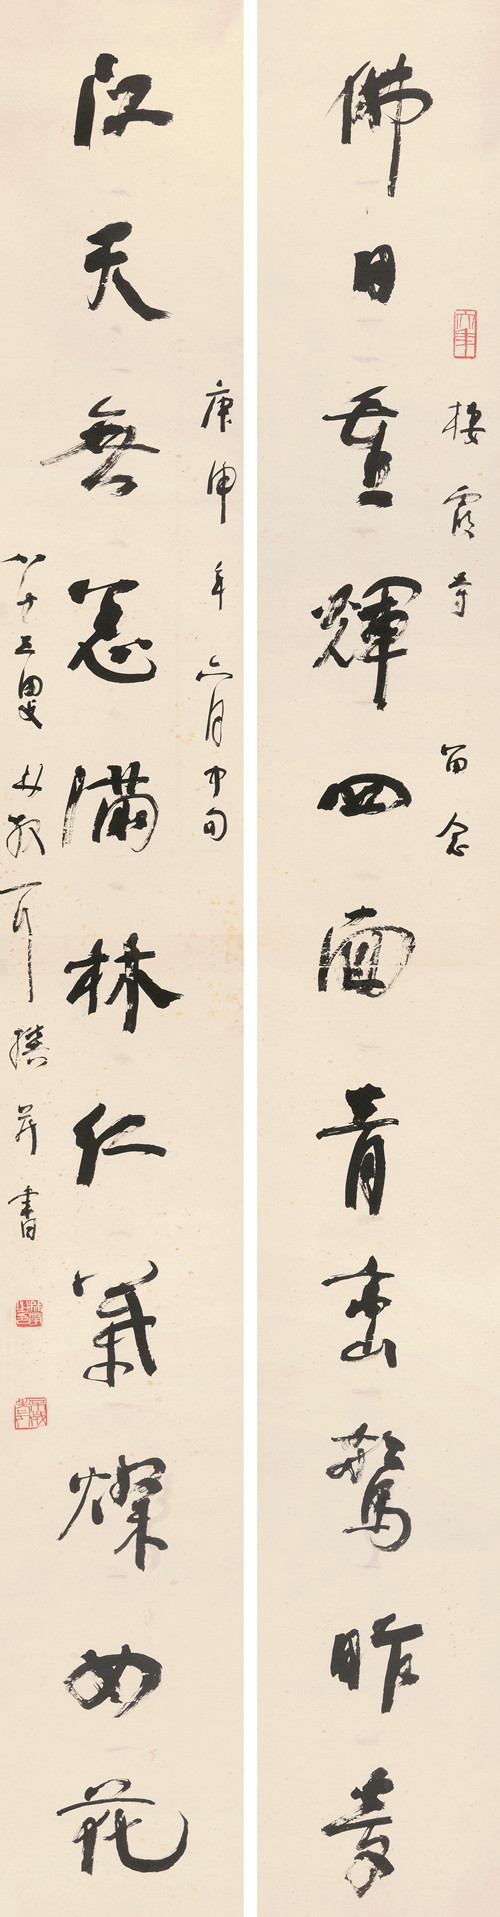 佛日重輝四面青巒驚昨夢
棲霞寺 留念
江天無恙滿林紅葉燦如花
庚申年六月中旬
八十三叟林散耳撰并書